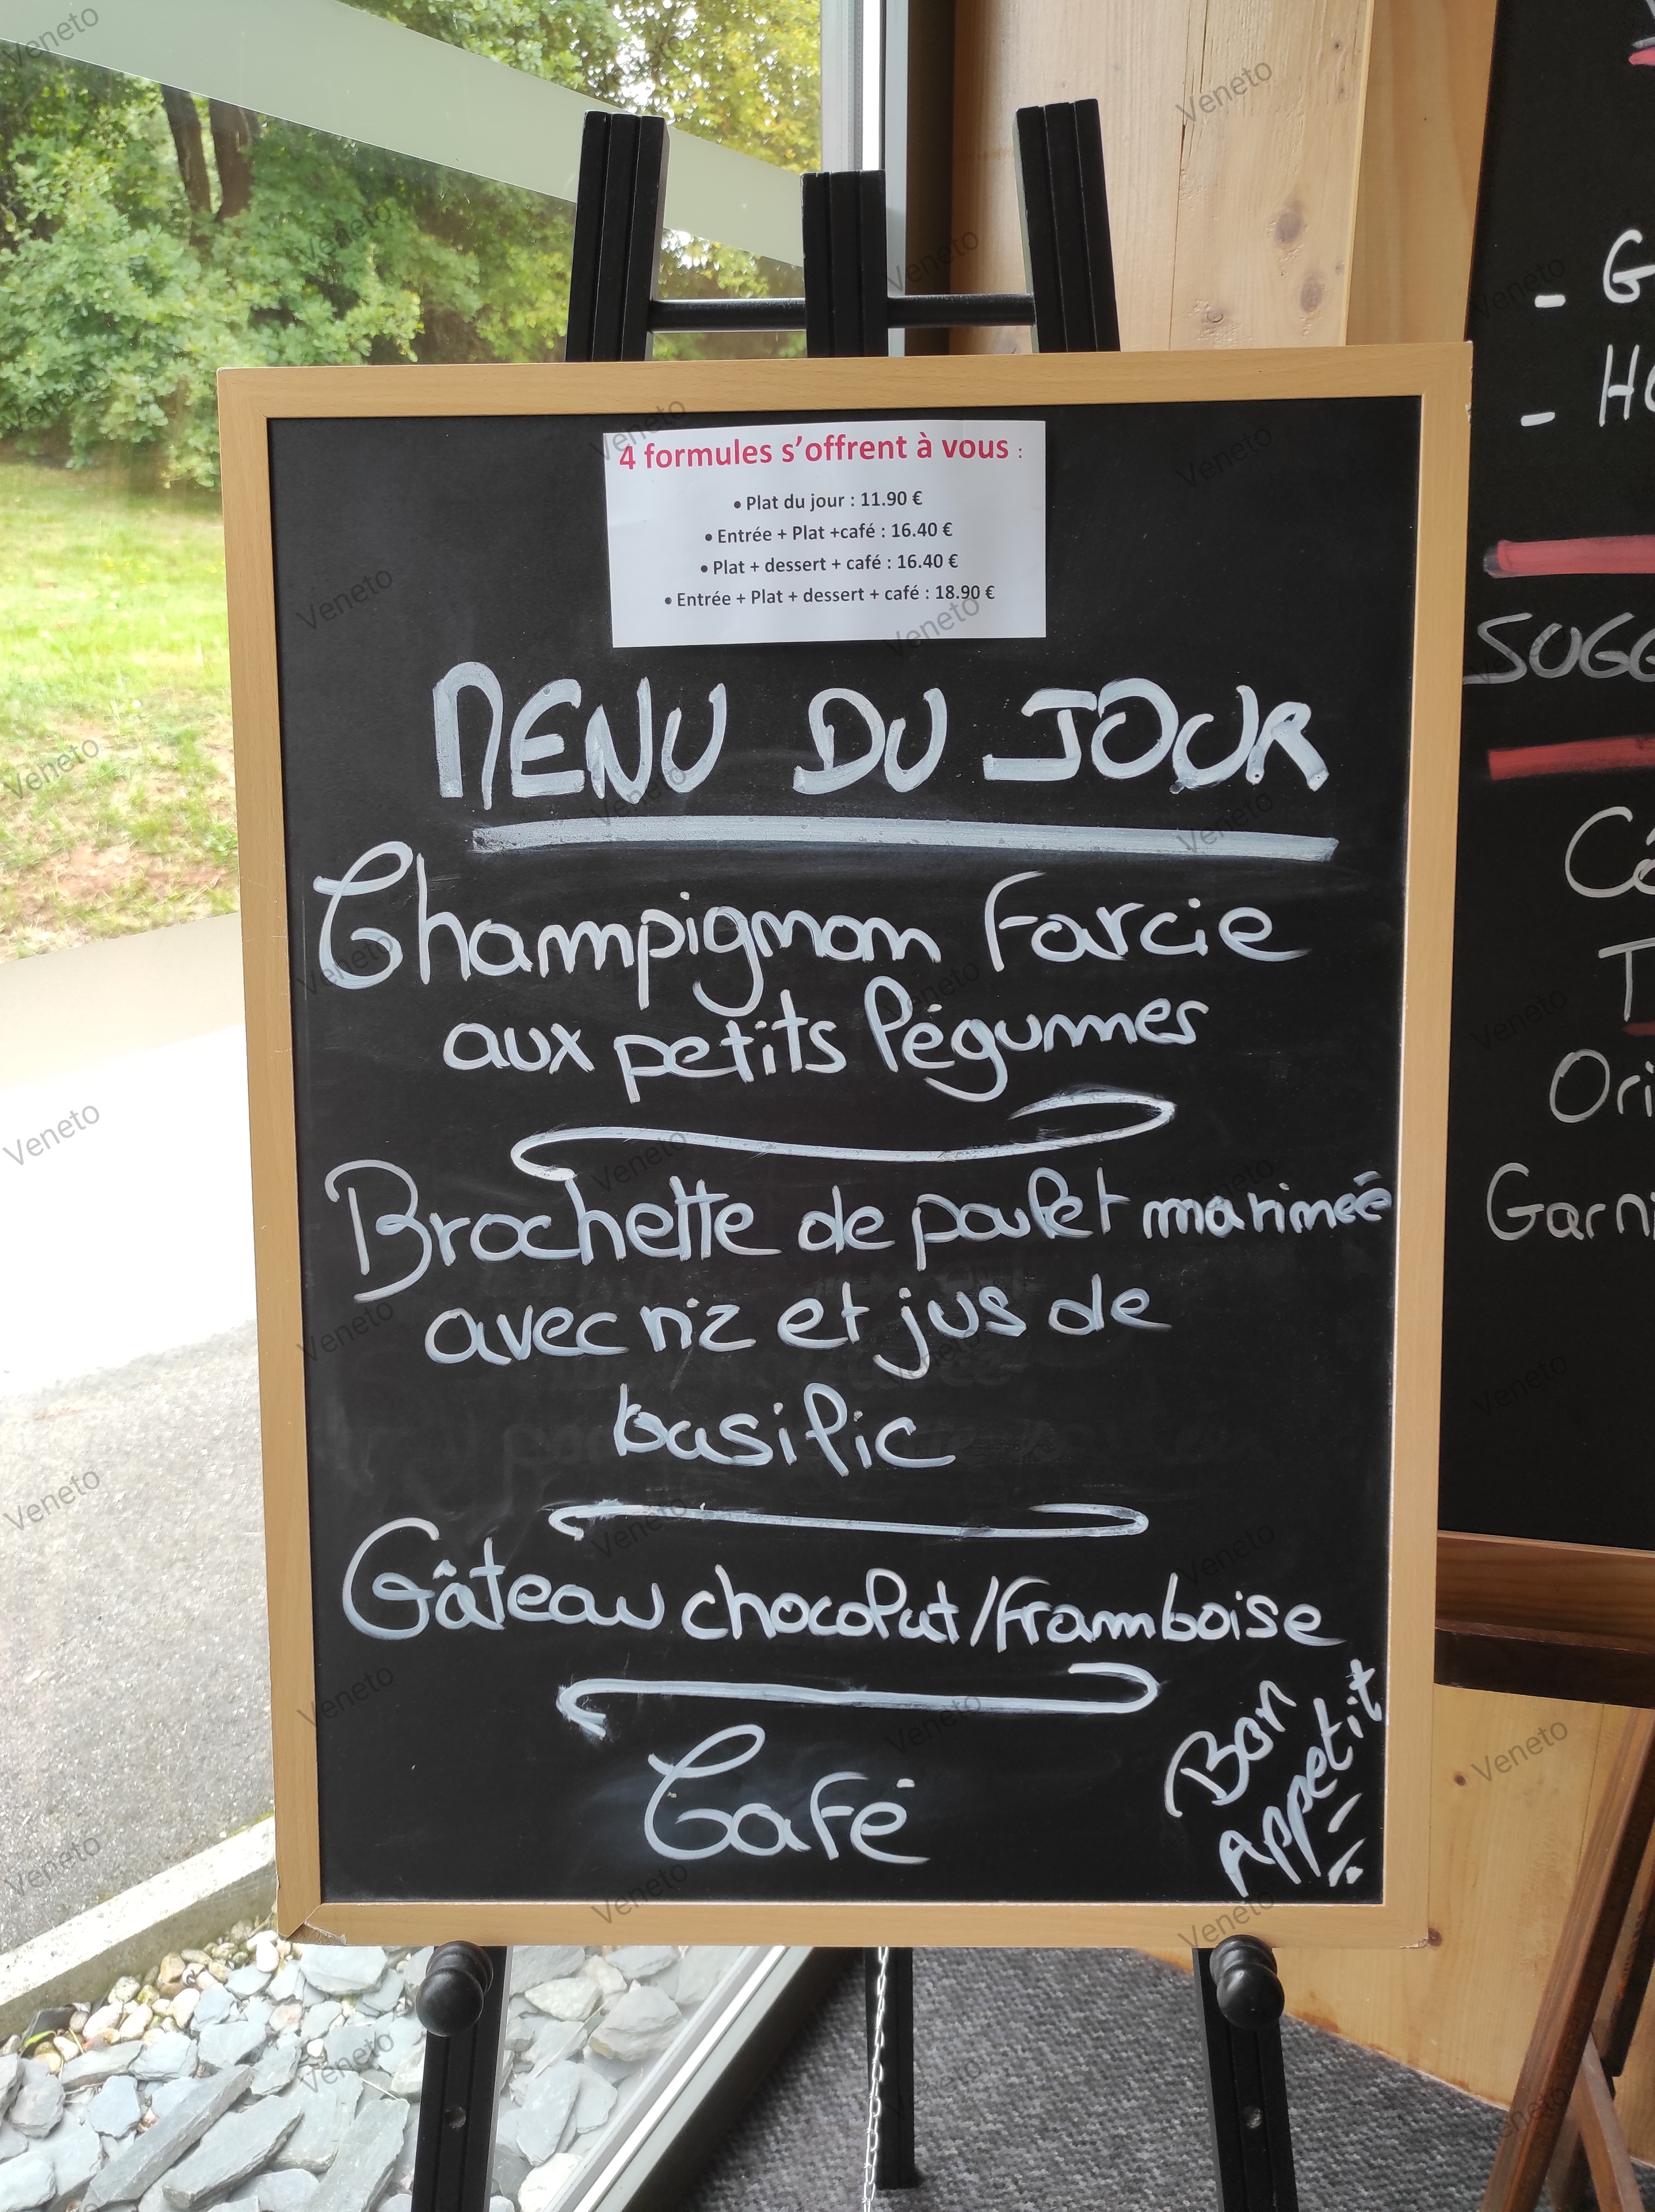 4 formules s'offrent à vous :
• Plat du jour : 11.90 €
• Entrée + Plat +café : 16.40 €
• Plat + dessert + café : 16.40 €
• Entrée + Plat + dessert + café : 18.90 €
MENU DU JOUR
Champignon farcie
aux petits légumes
Brochette de poulet marineé
avec riz et jus de
basilic
Gâteau chocolat/framboise
Café
Bon
Appetit
- G
- HO
SUGG
Cô
T
Ori
Garni
Veneto